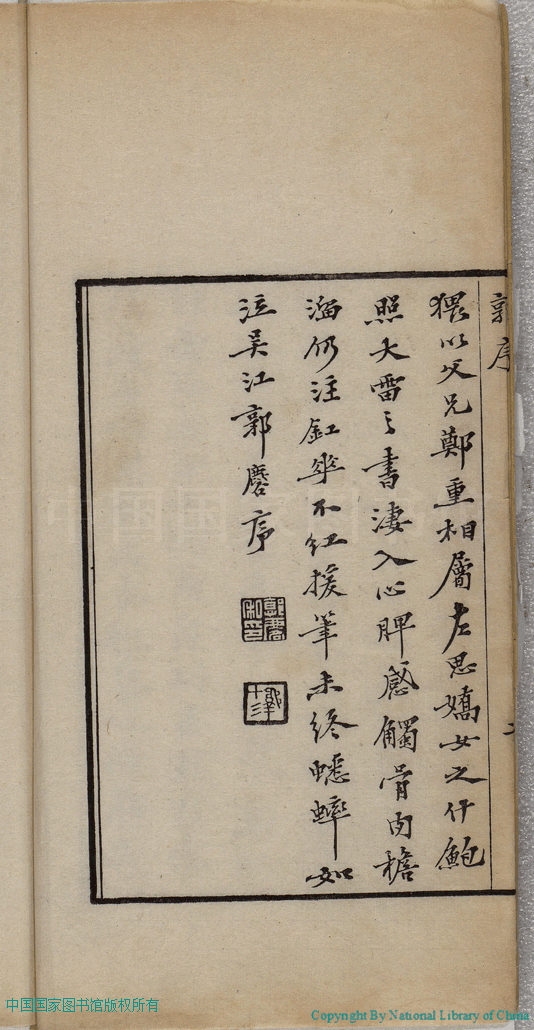 郭序
猥以父兄鄭重相屬左思嬌女之什鮑
照大雷之書淒入心脾感觸骨肉檐
溜仍注釭華不紅援筆未終蟋蟀如
泣吳江郭麐序
郭麐私印
中国国家图书馆版权所有
Copyright By National Library of China